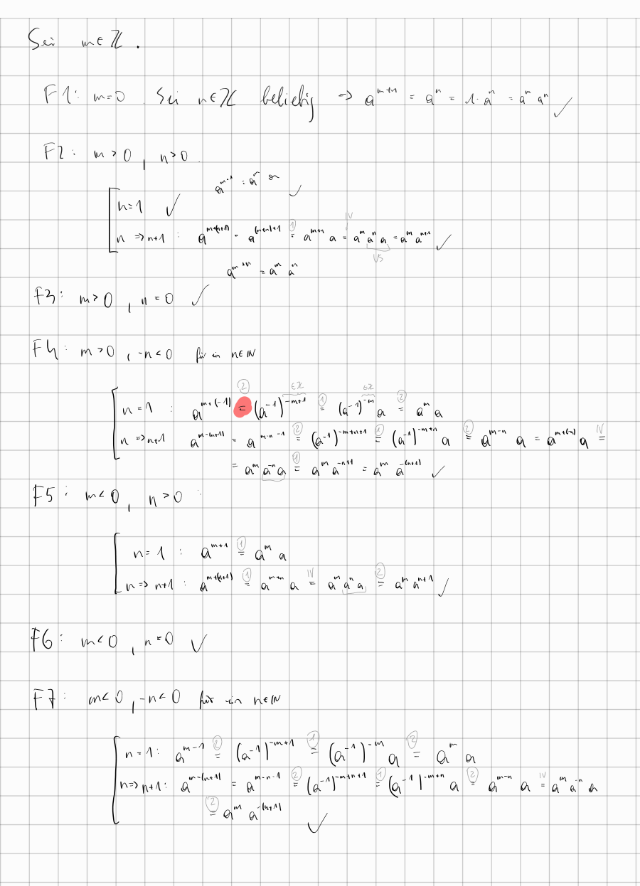 Sei m∈ℤ.
F1: m=0 Sei n∈ℤ beliebig ⇒ a^{m+n} = a^n = 1·a^n = a^m a^n ✓
F2: m>0, n>0
n=1 ✓
n ⇒ n+1: a^{m+(n+1)} = a^{(m+n)+1} =① a^{m+n} a =IV a^m a^n a = a^m a^{n+1} ✓
VS
a^{m+n} = a^m a^n
F3: m>0, n=0 ✓
F4: m>0, -n<0 für ein n∈ℕ
∈ℤ ∈ℤ
n=1: a^{m+(-1)} =② (a^{-1})^{-m+1} =① (a^{-1})^{-m} a =② a^m a
n ⇒ n+1 a^{m-(n+1)} = a^{m-n-1} =② (a^{-1})^{-m+n+1} =① (a^{-1})^{-m+n} a =② a^{m-n} a = a^{m+(-n)} a =IV
= a^m a^{-n} a =① a^m a^{-n+1} = a^m a^{-(n+1)} ✓
F5: m<0, n>0
n=1: a^{m+1} =① a^m a
n ⇒ n+1: a^{m+(n+1)} =① a^{m+n} a =IV a^m a^n a =② a^m a^{n+1} ✓
F6: m<0, n=0 ✓
F7: m<0, -n<0 für ein n∈ℕ
n=1: a^{m-1} =② (a^{-1})^{-m+1} =① (a^{-1})^{-m} a =② a^m a
n ⇒ n+1: a^{m-(n+1)} = a^{m-n-1} =② (a^{-1})^{-m+n+1} =① (a^{-1})^{-m+n} a =② a^{m-n} a =IV a^m a^{-n} a
=② a^m a^{-(n+1)} ✓